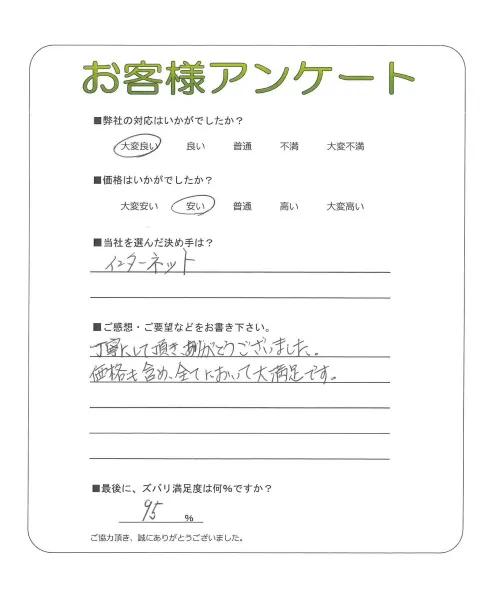 お客様アンケート
■弊社の対応はいかがでしたか？
大変良い 良い 普通 不満 大変不満
■価格はいかがでしたか？
大変安い 安い 普通 高い 大変高い
■当社を選んだ決め手は？
インターネット
■ご感想・ご要望などをお書き下さい。
丁寧にして頂き、ありがとうございました。
価格も含め、全てにおいて大満足です。
■最後に、ズバリ満足度は何%ですか？
95 %
ご協力頂き、誠にありがとうございました。